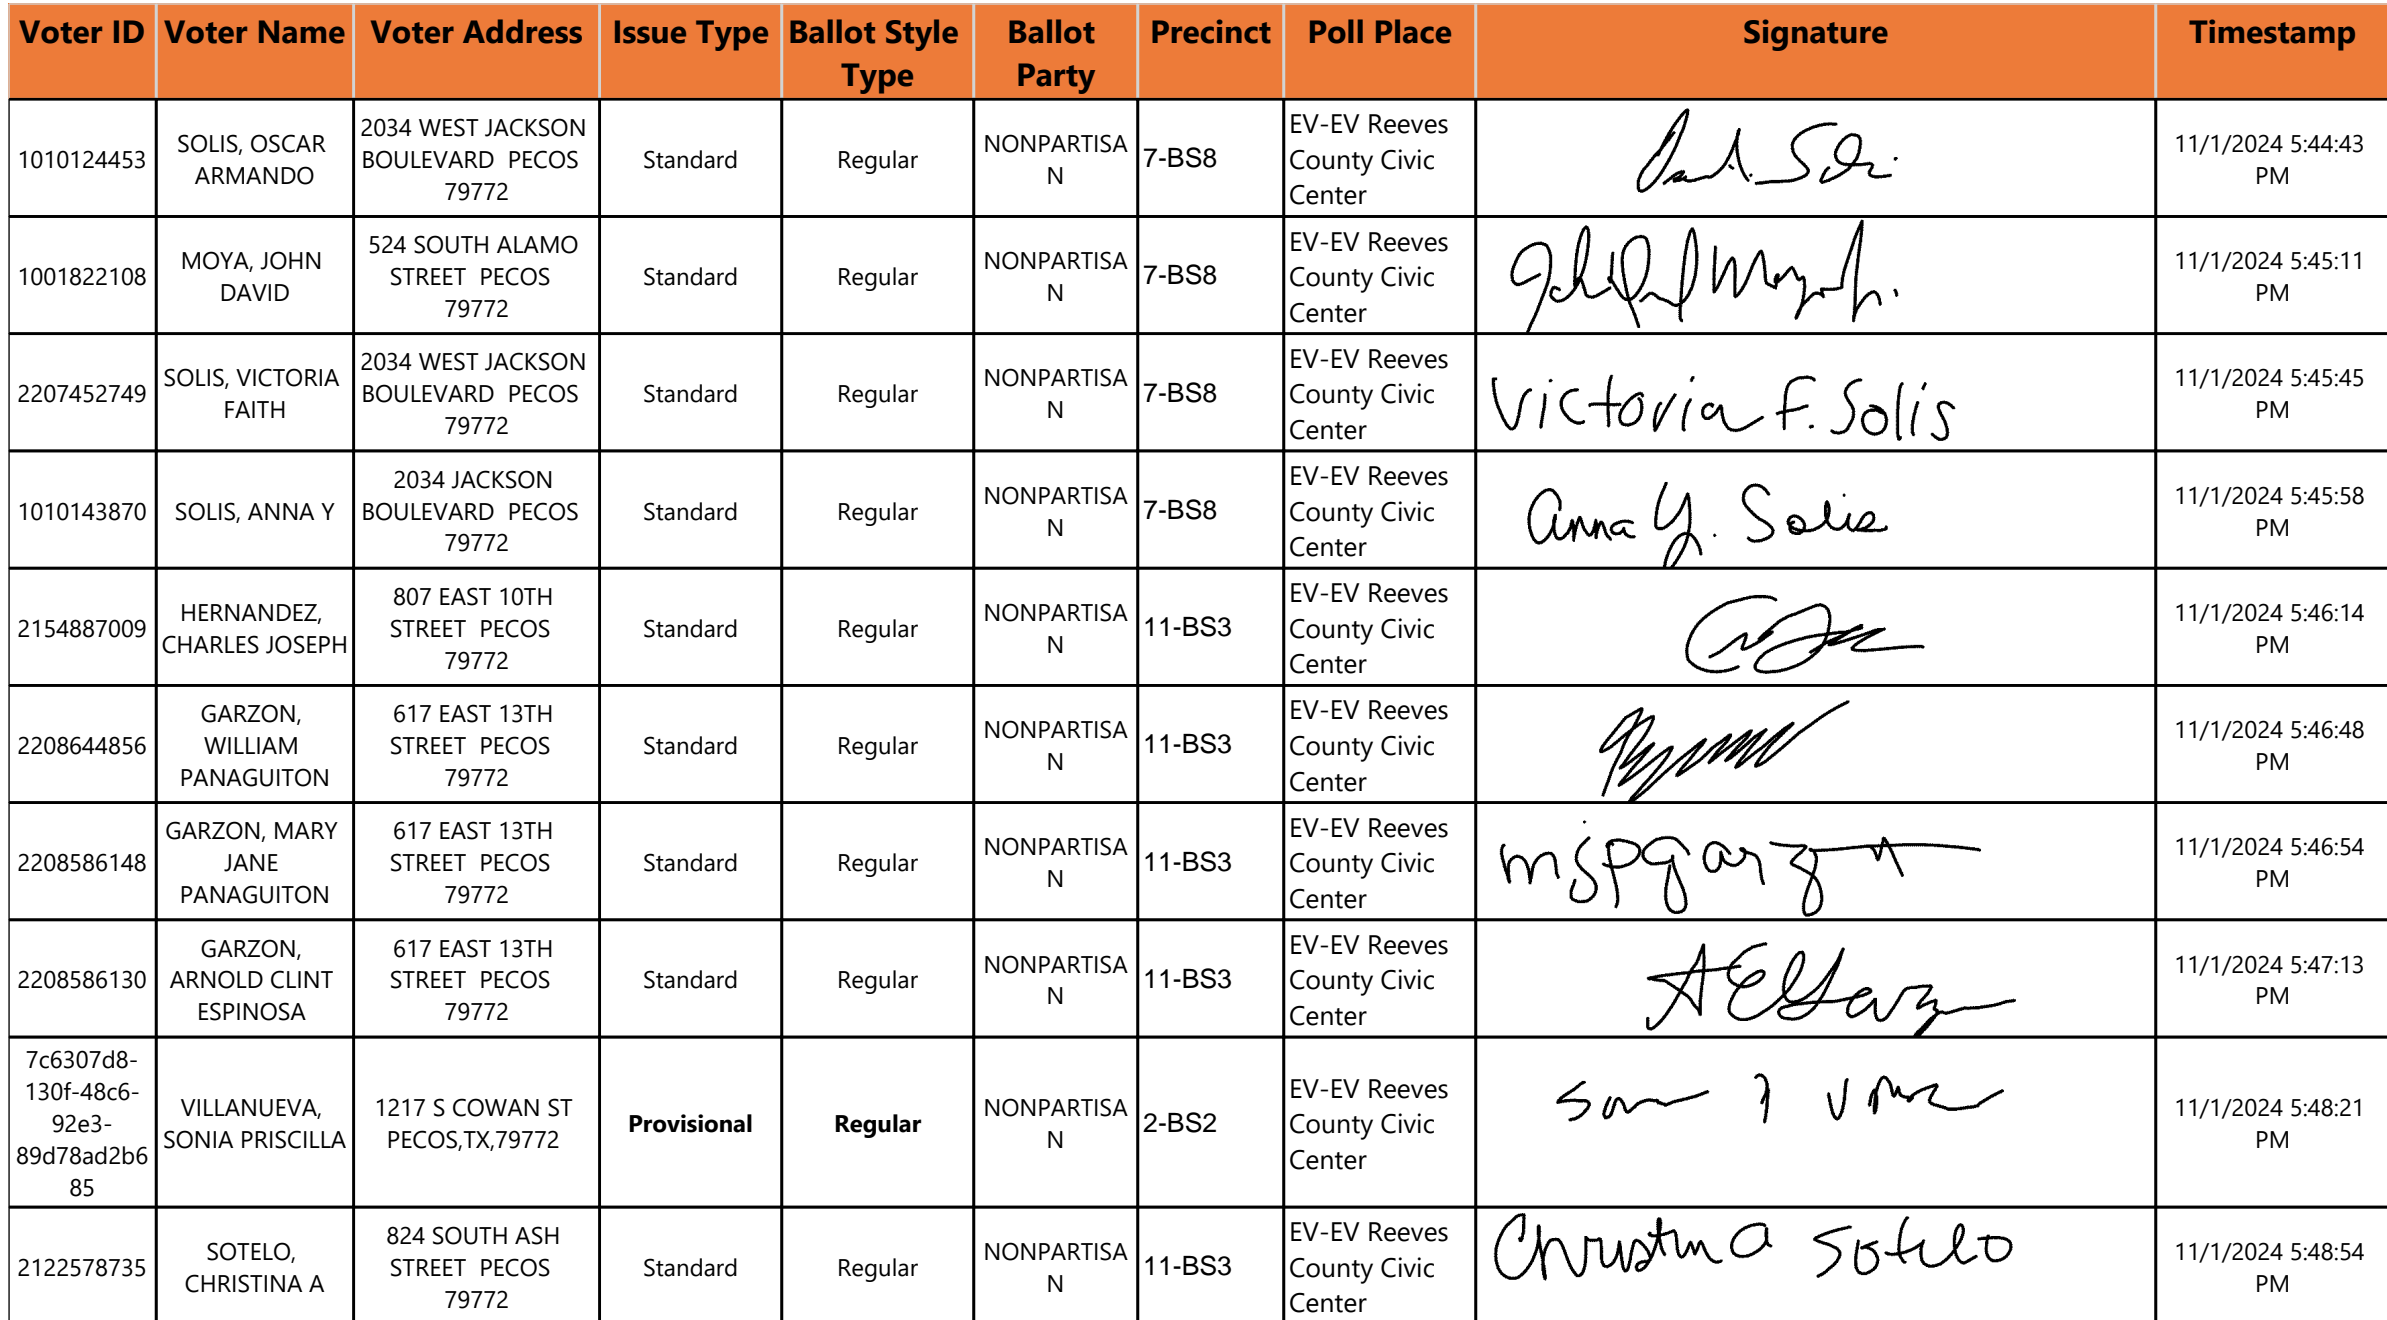 Voter ID Voter Name Voter Address Issue Type Ballot Style Type Ballot Party Precinct Poll Place Signature Timestamp
1010124453 SOLIS, OSCAR ARMANDO 2034 WEST JACKSON BOULEVARD PECOS 79772 Standard Regular NONPARTISAN 7-BS8 EV-EV Reeves County Civic Center 11/1/2024 5:44:43 PM
1001822108 MOYA, JOHN DAVID 524 SOUTH ALAMO STREET PECOS 79772 Standard Regular NONPARTISAN 7-BS8 EV-EV Reeves County Civic Center 11/1/2024 5:45:11 PM
2207452749 SOLIS, VICTORIA FAITH 2034 WEST JACKSON BOULEVARD PECOS 79772 Standard Regular NONPARTISAN 7-BS8 EV-EV Reeves County Civic Center Victoria F. Solis 11/1/2024 5:45:45 PM
1010143870 SOLIS, ANNA Y 2034 JACKSON BOULEVARD PECOS 79772 Standard Regular NONPARTISAN 7-BS8 EV-EV Reeves County Civic Center Anna Y. Solis 11/1/2024 5:45:58 PM
2154887009 HERNANDEZ, CHARLES JOSEPH 807 EAST 10TH STREET PECOS 79772 Standard Regular NONPARTISAN 11-BS3 EV-EV Reeves County Civic Center 11/1/2024 5:46:14 PM
2208644856 GARZON, WILLIAM PANAGUITON 617 EAST 13TH STREET PECOS 79772 Standard Regular NONPARTISAN 11-BS3 EV-EV Reeves County Civic Center 11/1/2024 5:46:48 PM
2208586148 GARZON, MARY JANE PANAGUITON 617 EAST 13TH STREET PECOS 79772 Standard Regular NONPARTISAN 11-BS3 EV-EV Reeves County Civic Center 11/1/2024 5:46:54 PM
2208586130 GARZON, ARNOLD CLINT ESPINOSA 617 EAST 13TH STREET PECOS 79772 Standard Regular NONPARTISAN 11-BS3 EV-EV Reeves County Civic Center 11/1/2024 5:47:13 PM
7c6307d8-130f-48c6-92e3-89d78ad2b685 VILLANUEVA, SONIA PRISCILLA 1217 S COWAN ST PECOS,TX,79772 Provisional Regular NONPARTISAN 2-BS2 EV-EV Reeves County Civic Center 11/1/2024 5:48:21 PM
2122578735 SOTELO, CHRISTINA A 824 SOUTH ASH STREET PECOS 79772 Standard Regular NONPARTISAN 11-BS3 EV-EV Reeves County Civic Center Christina Sotelo 11/1/2024 5:48:54 PM